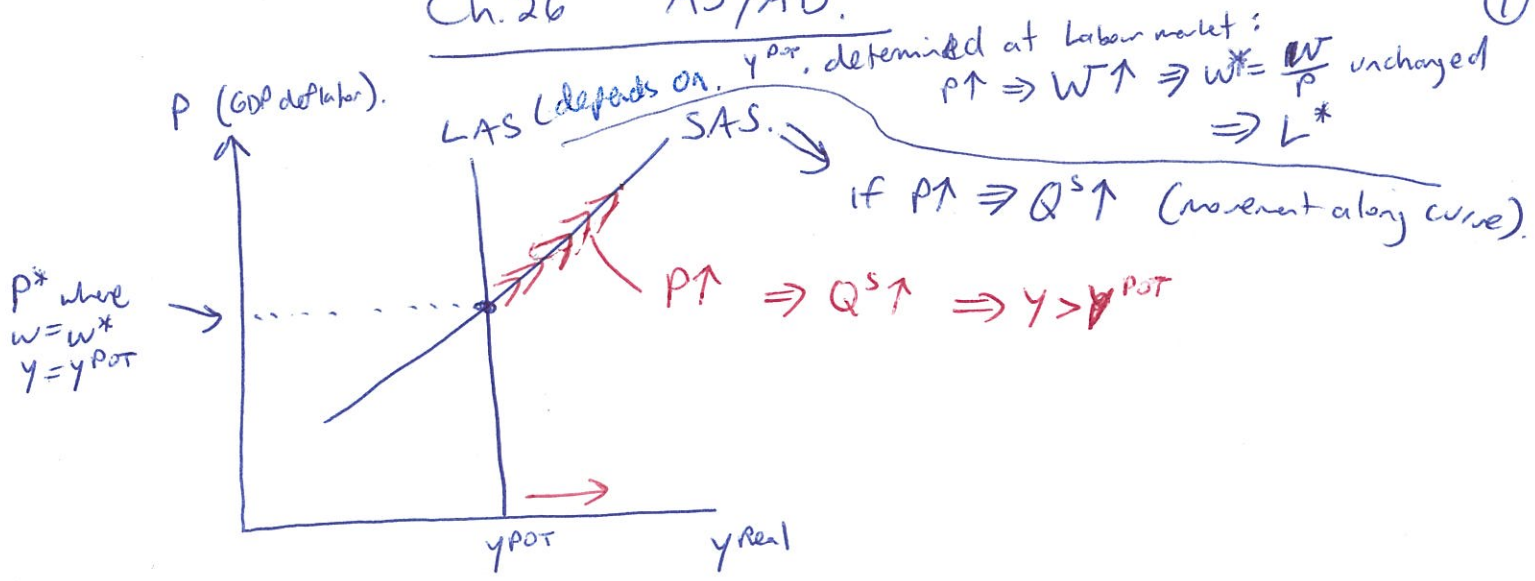 Ch. 26 AS/AD.
1
LAS (depends on Y^POT, determined at Labour market:
P↑ ⇒ W↑ ⇒ w* = W/P unchanged
⇒ L*
P (GDP deflator).
SAS.
if P↑ ⇒ Q^S↑ (movement along curve).
P↑ ⇒ Q^S↑ ⇒ Y > Y^POT
P* where
w = w*
Y = Y^POT
Y^POT
Y^Real